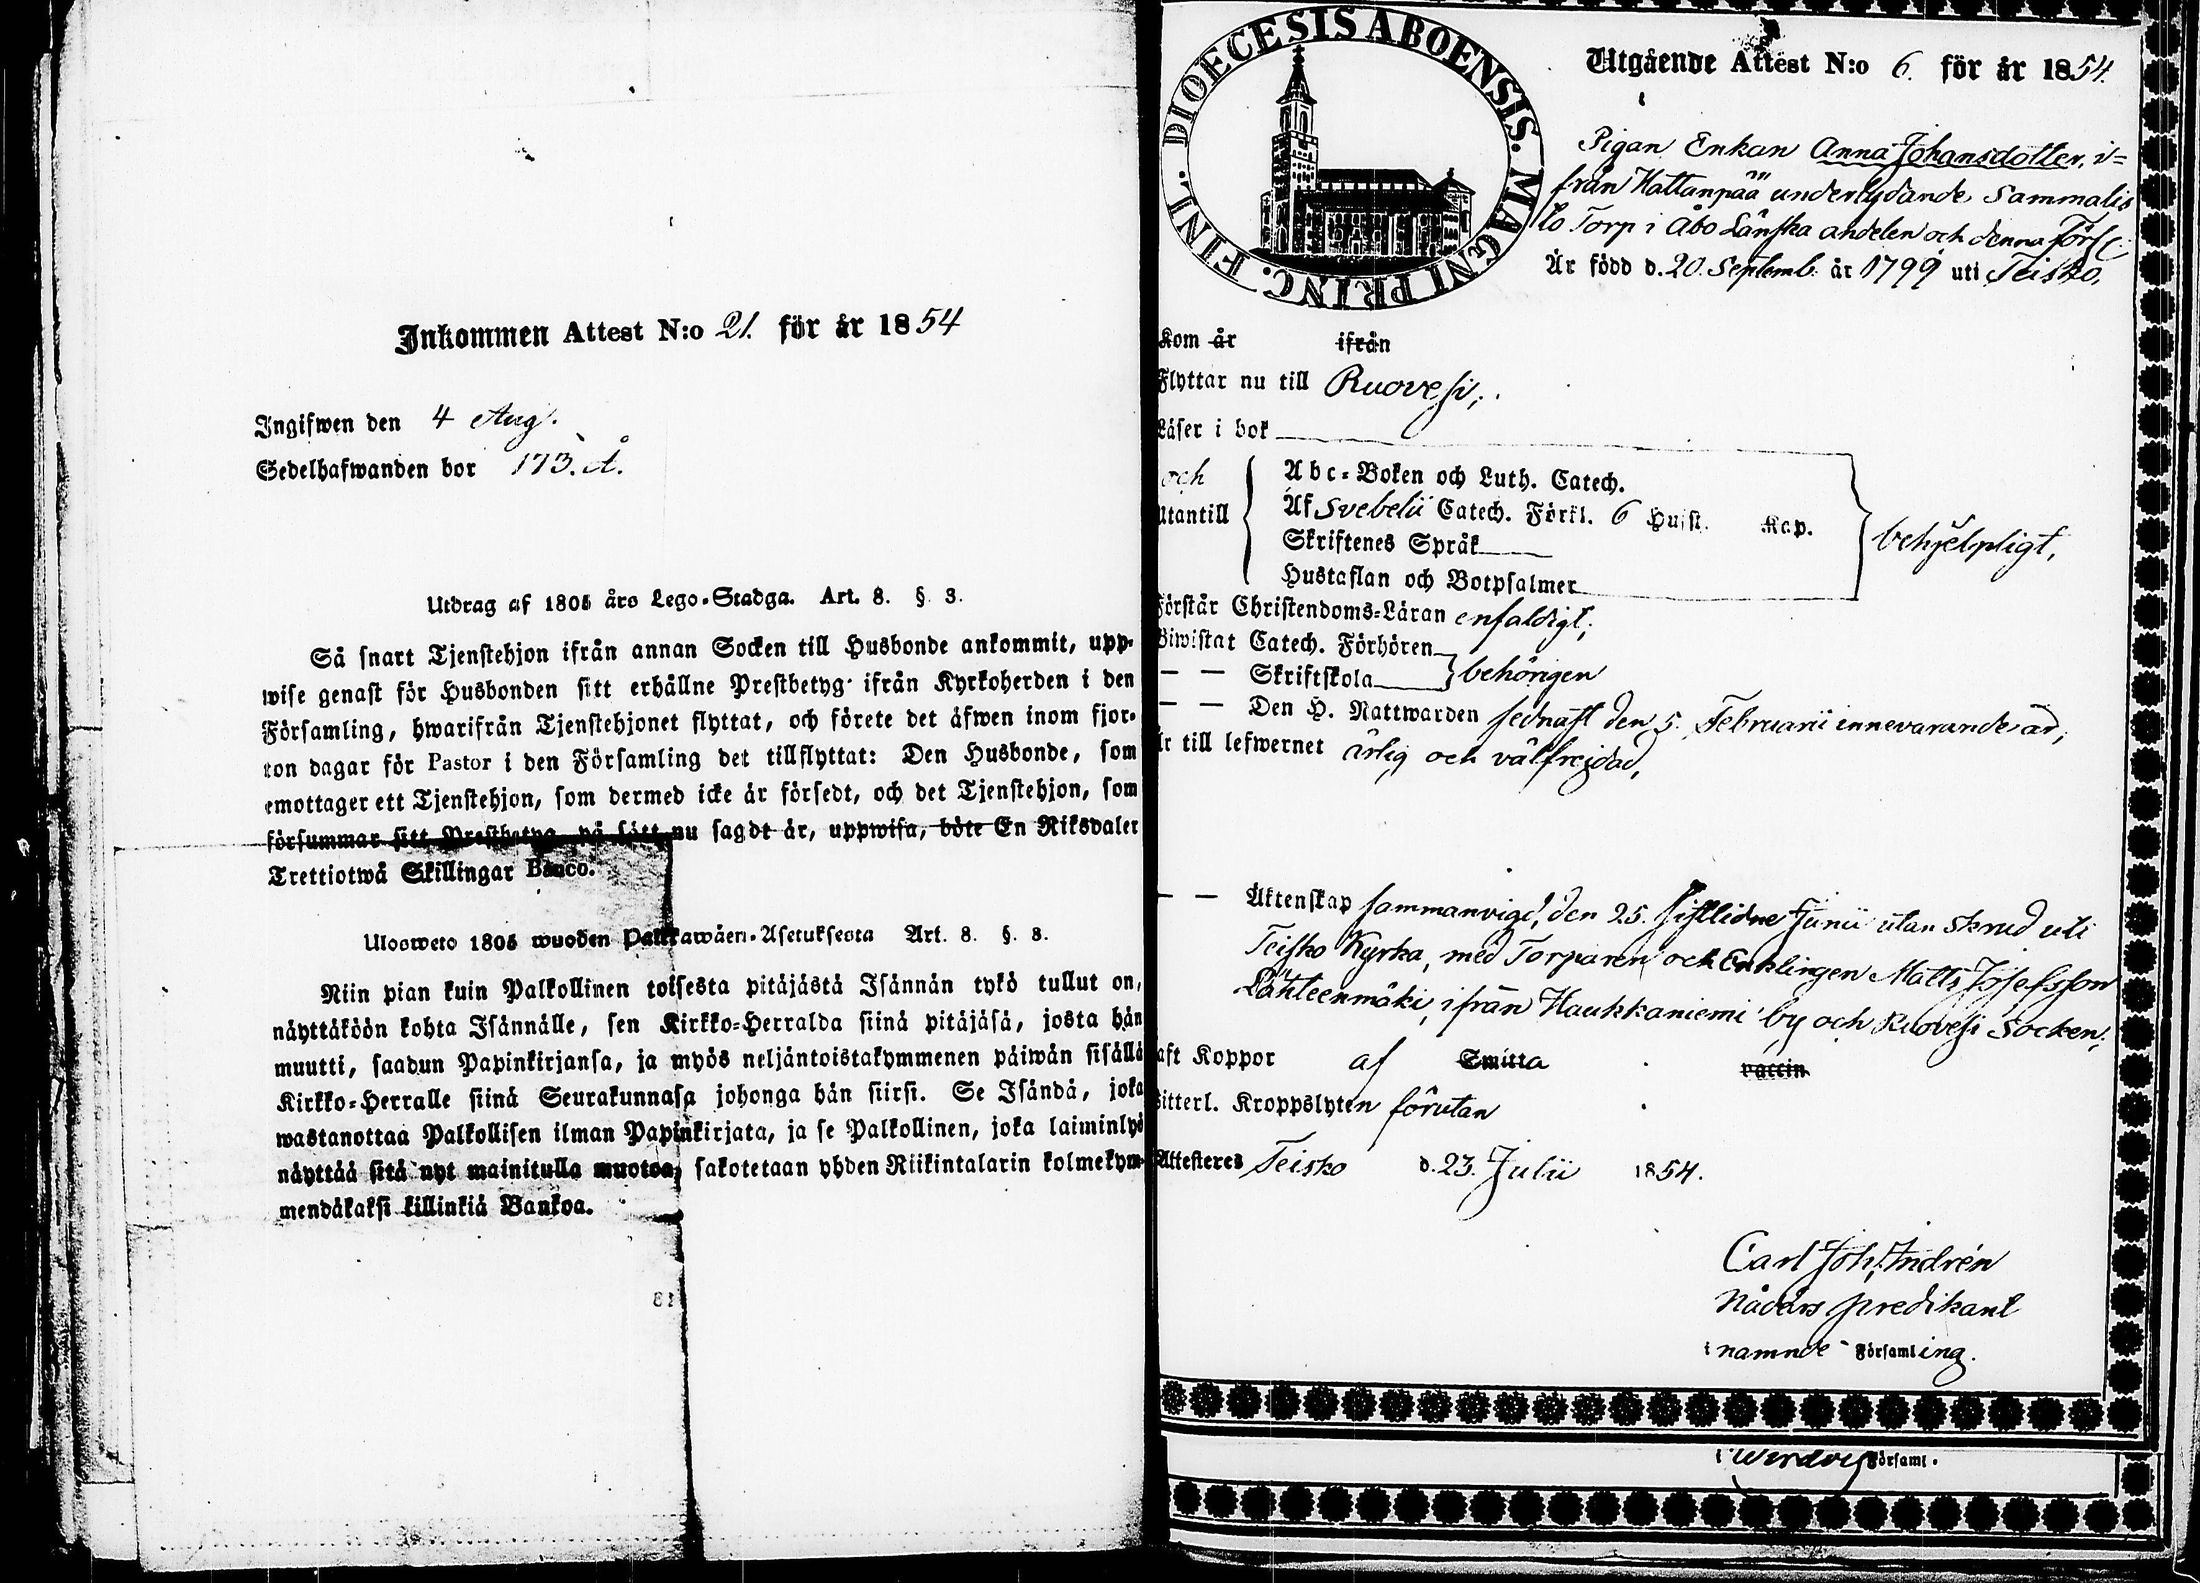 Inkommen Attest N:o 21. för år 1854
Ingifwen den 4 Aug.
Sedelhafwanden bor 173. Å.
Utdrag af 1805 års Lego-Stadga. Art. 8. § 3.
Så snart Tjenstehjon ifrån annan Socken till Husbonde ankommit, upp-
wise genast för Husbonden sitt erhållne Prestbetyg ifrån Kyrkoherden i den
Församling, hwarifrån Tjenstehjonet flyttat, och förete det äfwen inom fjor-
ton dagar för Pastor i den Församling det tillflyttat: Den Husbonde, som
emottager ett Tjenstehjon, som dermed icke är försedt, och det Tjenstehjon, som
försummar sitt Prestbetyg, på sätt nu sagdt är, uppwisa, böte En Riksdaler
Trettiotwå Skillingar Banco.
Ulosweto 1805 wuoden Palkkawäen-Asetuksesta Art. 8. §. 3.
Niin pian kuin Palkollinen toisesta pitäjästä Isännän tykö tullut on,
näyttäköön kohta Isännälle, sen Kirkko-Herralda siinä pitäjäsä, josta hän
muutti, saadun Papinkirjansa, ja myös neljäntoistakymmenen päiwän sisällä
Kirkko-Herralle siinä Seurakunnasa johonga hän siirsi. Se Isändä, joka
wastanottaa Palkollisen ilman Papinkirjata, ja se Palkollinen, joka laiminlyö
näyttää sitä nyt mainitulla muotoa, sakotetaan yhden Riikintalarin kolmekym-
mendäkaksi killinkiä Bankoa.
82
FINL. DIOECESIS ABOENSIS. MAGNI PRINC.
Utgående Attest N:o 6. för år 1854.
Pigan Enkan Anna Johansdotter, i=
från Hattanpää underlydande Sammalis
to Torp i Åbo Länska andelen och denna Förs:
Är född d. 20. Septemb: år 1799 uti Teisko,
Kom år ifrån
Flyttar nu till Ruovesi,
Läser i bok
och
utantill
Abc-Boken och Luth. Catech.
Af Svebelii Catech. Förkl. 6 Hufst. Kap.
Skriftenes Språk
Hustaflan och Botpsalmer
behjelpligt,
Förstår Christendoms-Läran enfaldigt;
Biwistat Catech. Förhören
— — Skriftskola behörigen
— — Den H. Nattwarden sednast den 5. Februarii innevarande år,
Är till lefwernet ärlig och välfrejdad,
— — Äktenskap sammanvigd, den 25. sistlidne Junii utan skrud uti
Teisko Kyrka, med Torparen och Enklingen Matts Josefsson
Lähteenmäki, ifrån Haukkaniemi by och Ruovesi Socken,
aft Koppor af Smitta vaccin
Witterl. Kroppslyten förutan
Attesteres Teisko d. 23. Julii 1854.
Carl Joh. Andrén
Nådårs predikant
i namnde Församling.
i Församl.